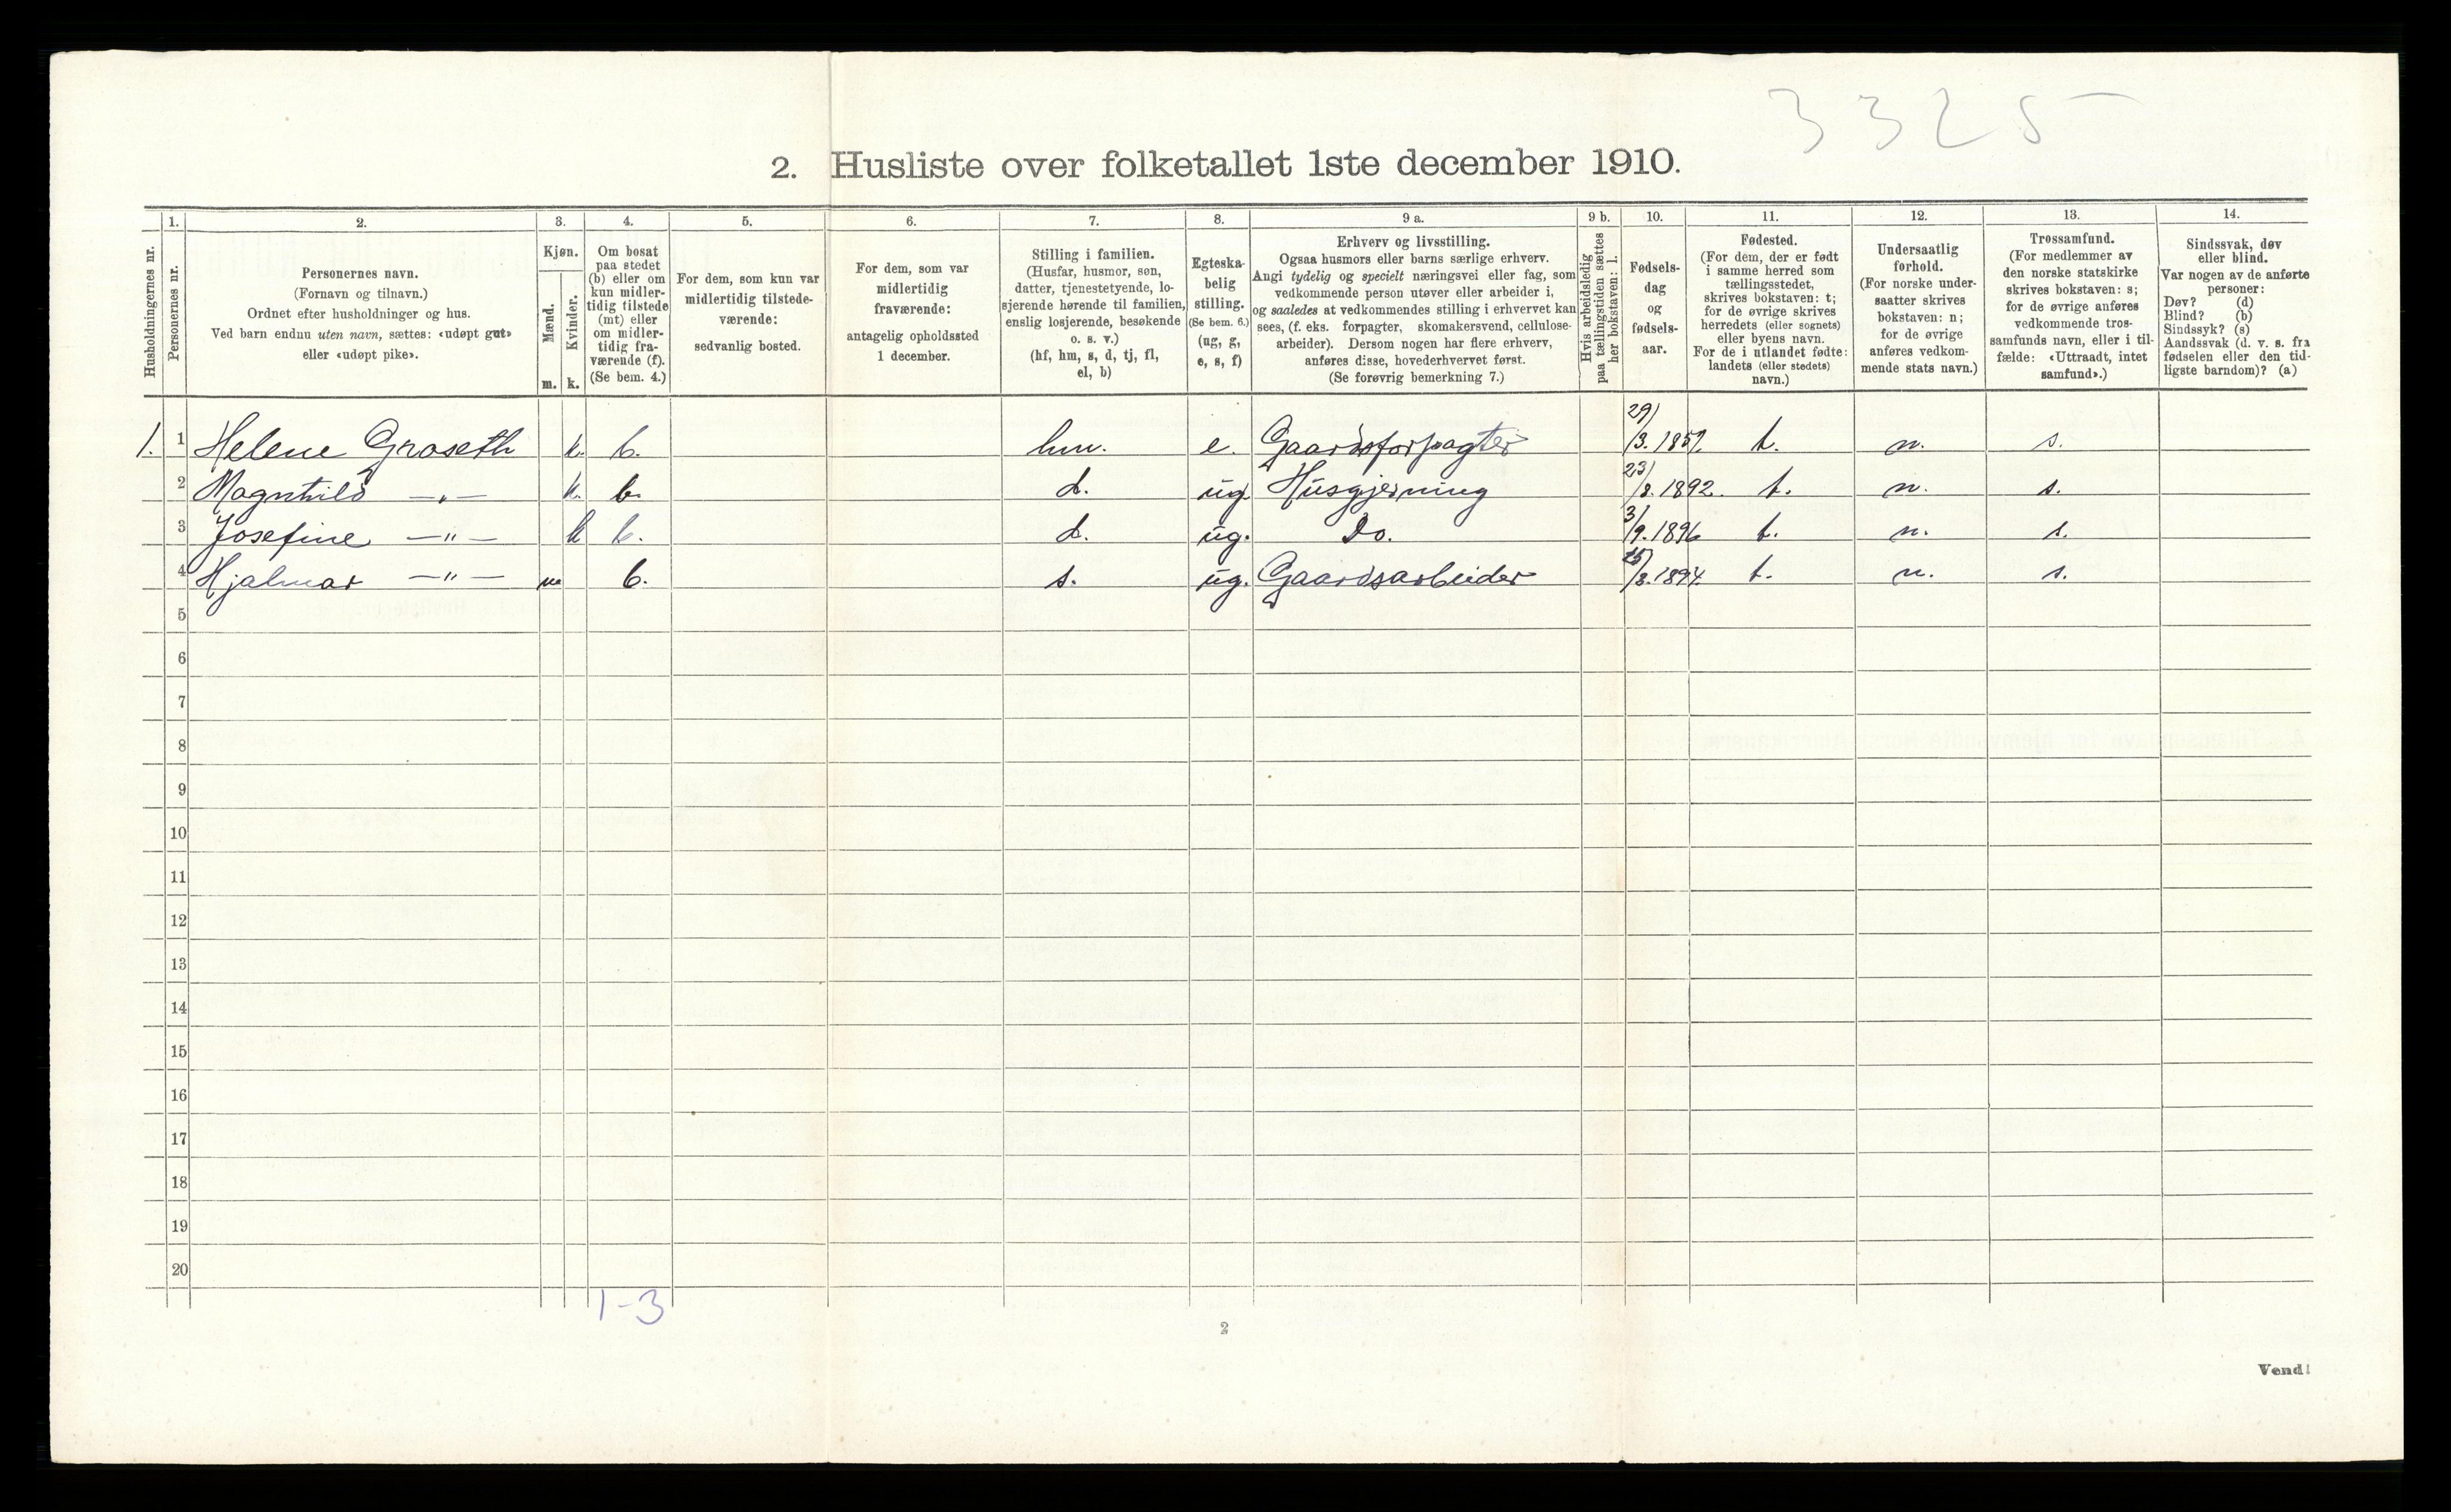 3325
2. Husliste over folketallet 1ste december 1910.
Husholdningernes nr.
1.
Personernes nr.
2.
Personernes navn.
(Fornavn og tilnavn.)
Ordnet efter husholdninger og hus.
Ved barn endnu uten navn, sættes: «udøpt gut»
eller «udøpt pike».
3.
Kjøn.
Mænd.
m.
Kvinder.
k.
4.
Om bosat
paa stedet
(b) eller om
kun midler-
tidig tilstede
(mt) eller
om midler-
tidig fra-
værende (f).
(Se bem. 4.)
5.
For dem, som kun var
midlertidig tilstede-
værende:
sedvanlig bosted.
6.
For dem, som var
midlertidig
fraværende:
antagelig opholdssted
1 december.
7.
Stilling i familien.
(Husfar, husmor, søn,
datter, tjenestetyende, lo-
sjerende hørende til familien,
enslig losjerende, besøkende
o. s. v.)
(hf, hm, s, d, tj, fl,
el, b)
8.
Egteska-
belig
stilling.
(Se bem. 6.)
(ug, g,
e, s, f)
9 a.
Erhverv og livsstilling.
Ogsaa husmors eller barns særlige erhverv.
Angi tydelig og specielt næringsvei eller fag, som
vedkommende person utøver eller arbeider i,
og saaledes at vedkommendes stilling i erhvervet kan
sees, (f. eks. forpagter, skomakersvend, cellulose-
arbeider). Dersom nogen har flere erhverv,
anføres disse, hovederhvervet først.
(Se forøvrig bemerkning 7.)
9 b.
Hvis arbeidsledig
paa tællingstiden sættes
her bokstaven: l.
10.
Fødsels-
dag
og
fødsels-
aar.
11.
Fødested.
(For dem, der er født
i samme herred som
tællingsstedet,
skrives bokstaven: t;
for de øvrige skrives
herredets (eller sognets)
eller byens navn.
For de i utlandet fødte:
landets (eller stedets)
navn.)
12.
Undersaatlig
forhold.
(For norske under-
saatter skrives
bokstaven: n;
for de øvrige
anføres vedkom-
mende stats navn.)
13.
Trossamfund.
(For medlemmer av
den norske statskirke
skrives bokstaven: s;
for de øvrige anføres
vedkommende tros-
samfunds navn, eller i til-
fælde: «Uttraadt, intet
samfund».)
14.
Sindssvak, døv
eller blind.
Var nogen av de anførte
personer:
Døv? (d)
Blind? (b)
Sindssyk? (s)
Aandssvak (d. v. s. fra
fødselen eller den tid-
ligste barndom)? (a)
1. 1 Helene Groseth k. b. hm. e. Gaardsforpagter 29/3. t. n. s.
2 Magnhild —"— k. b. d. ug. Husgjerning 23/8. 1892. t. n. s.
3 Josefine —"— k b. d. ug. Do. 3/9. 1896 t. n. s.
4 Hjalmar —"— m b. s. ug. Gaardsarbeider 1894. t. n. s.
5
6
7
8
9
10
11
12
13
14
15
16
17
18
19
20
1-3
2
Vend!